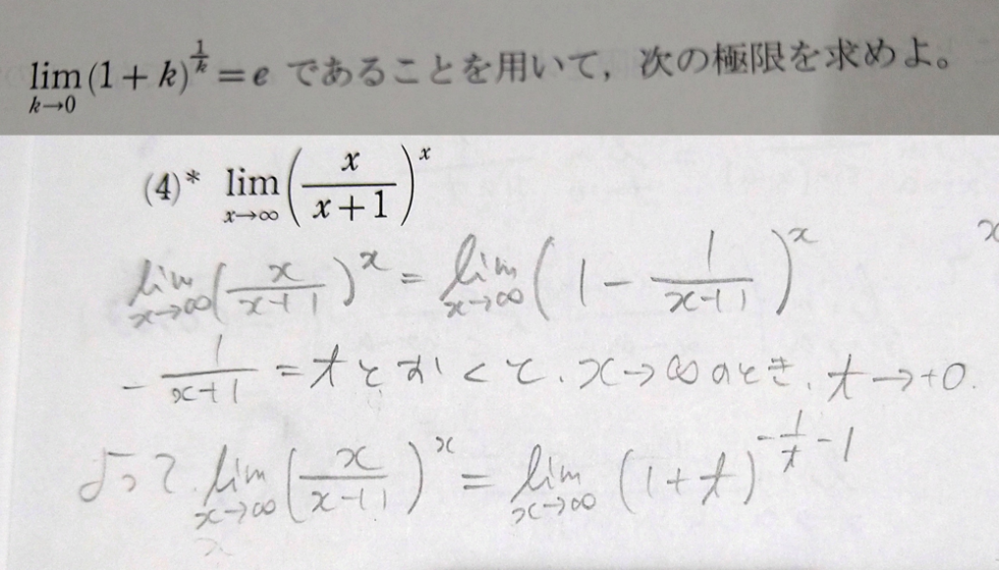 lim_{k→0} (1 + k)^{1/k} = e であることを用いて，次の極限を求めよ。
(4)* lim_{x→∞} (x/(x+1))^x
lim_{x→∞} (x/(x+1))^x = lim_{x→∞} (1 - 1/(x+1))^x
- 1/(x+1) = t とおくと、x→∞のとき、t→+0.
よって、lim_{x→∞} (x/(x+1))^x = lim_{x→∞} (1+t)^{-1/t - 1}
x